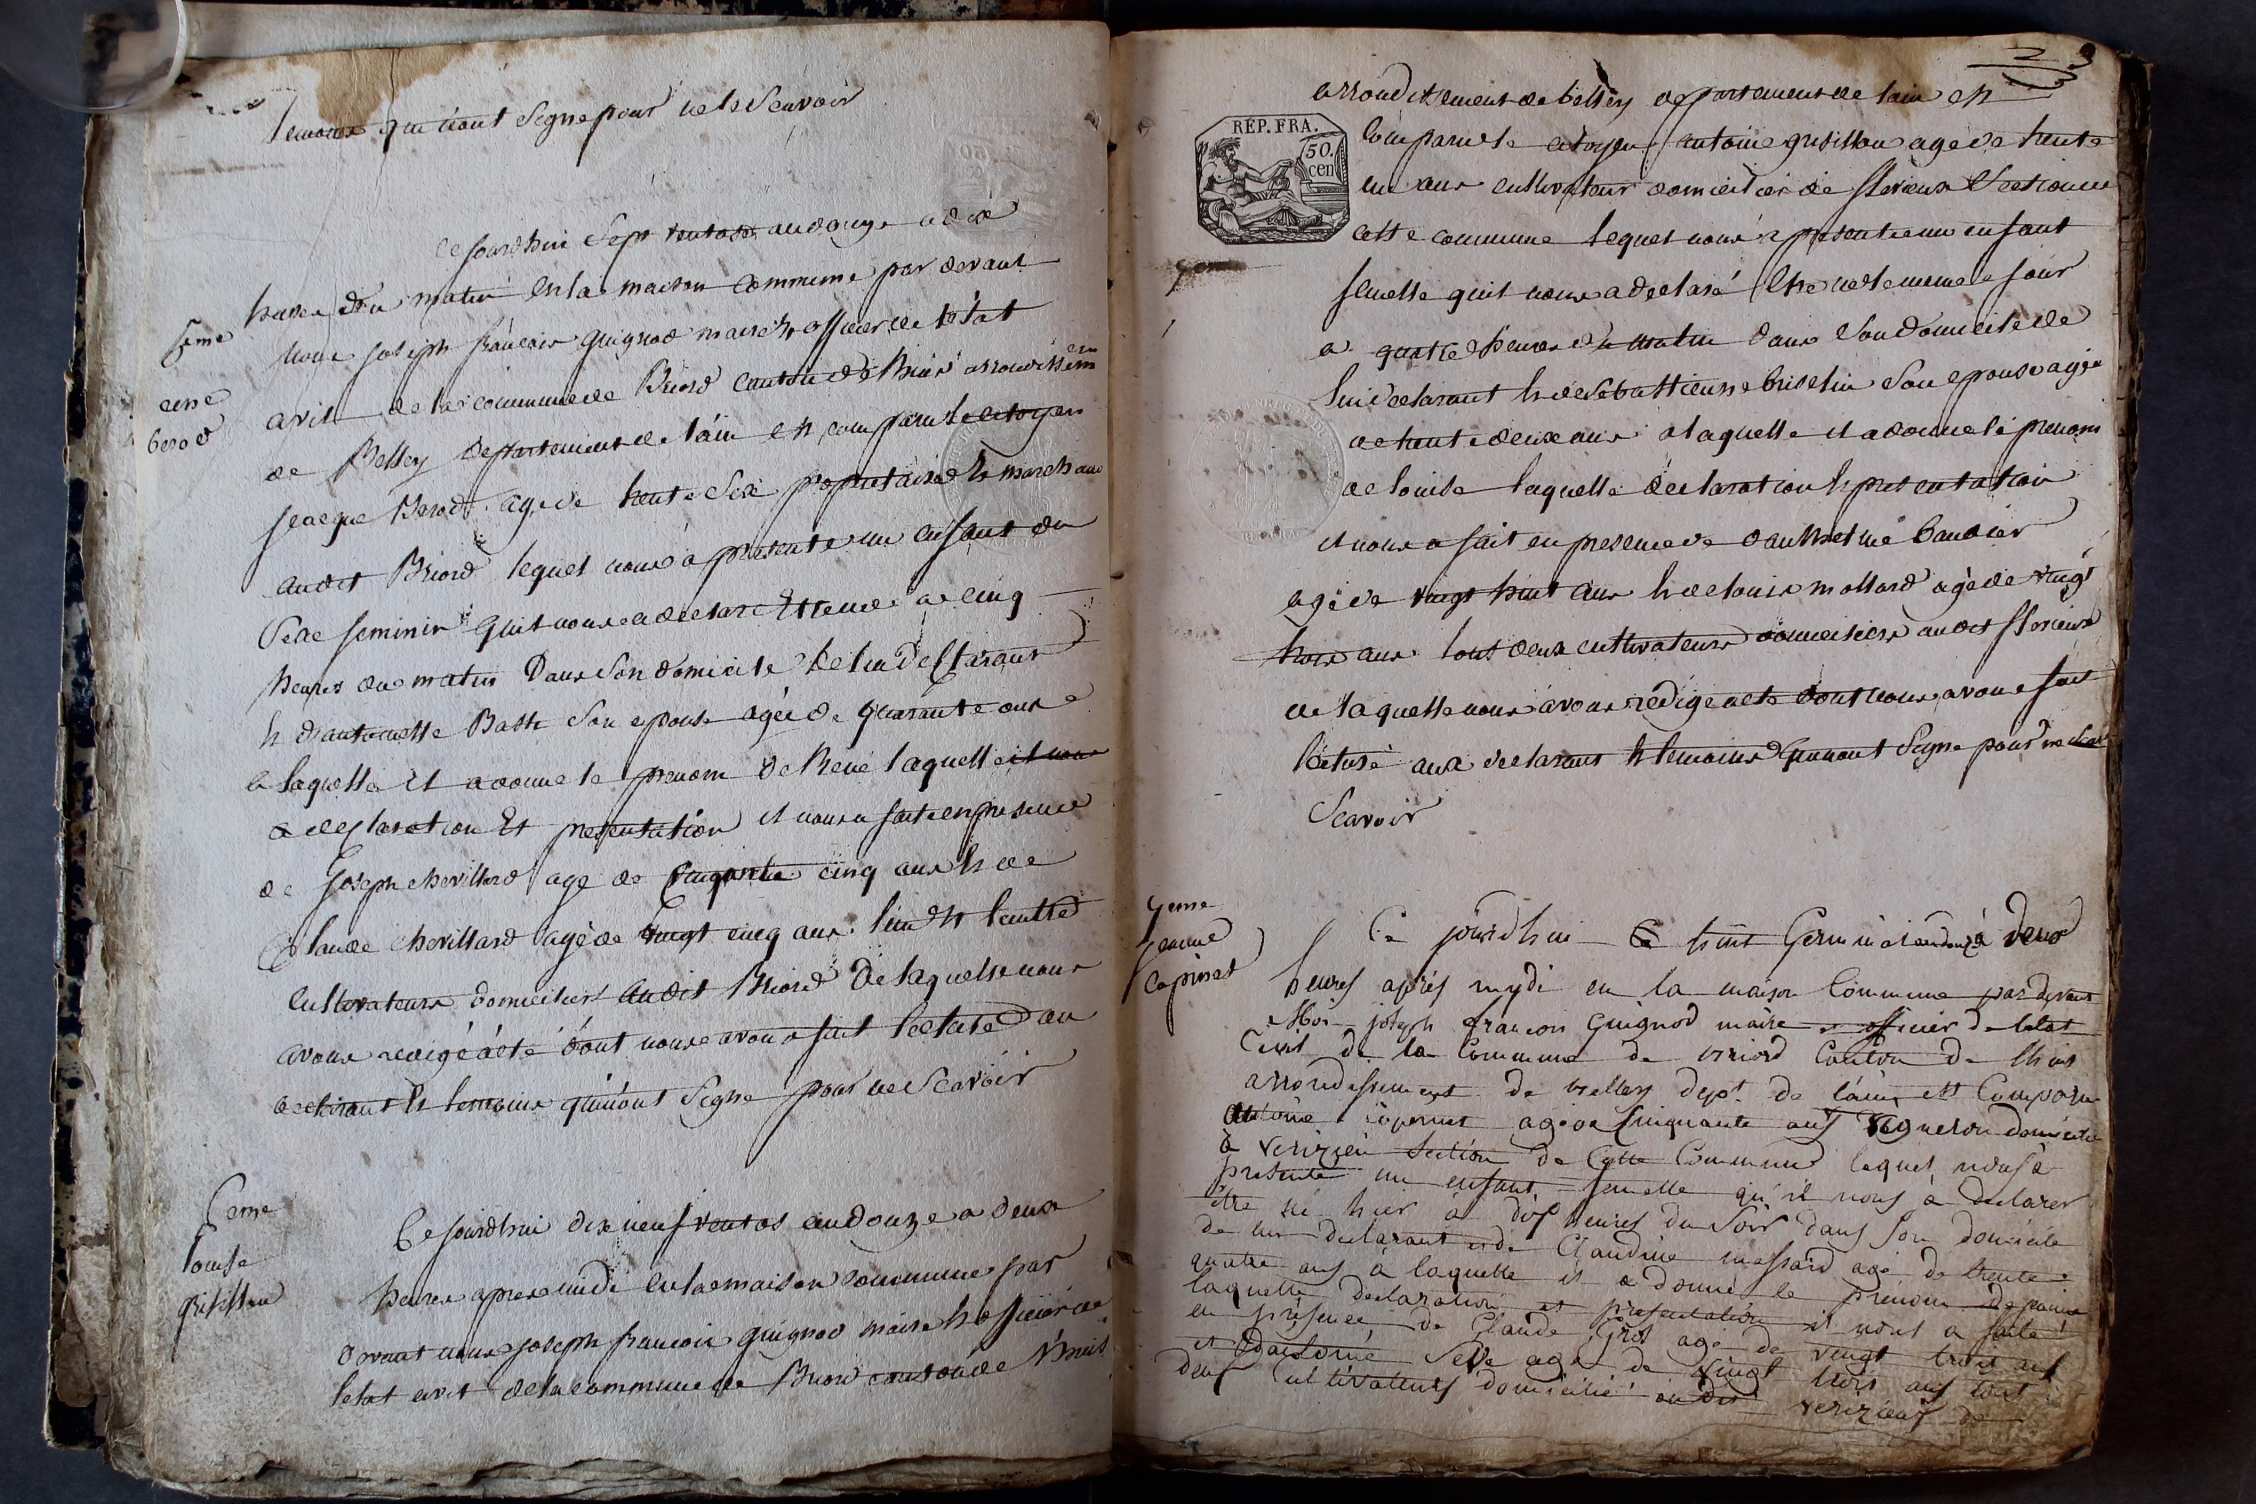 temoins qui nont Signe pour ne le Scavoir
5eme
eme
berod
Cejourdhuy Sept ventose an douze a dix
heures du matin en la maison commune par devant
nous joseph francois guignod maire et officier de letat
civil de la commune de Briord canton de lhuis arrondissem
en
de Belley departement de lain est comparu le citoyen
jacque Berod age de trente Six proprietaire et marchand
audit Briord lequel nous a presente un enfant du
Sexe feminin quil nous a declare Etre née a cinq
heures du matin Dans Son domicile de lui Declarant
et dantoinette Son epouse agée de quarante ans
a laquelle il a donne le prenom de laquelle
declaration Et presentation il nous a faite en presence
de joseph chevillard age de cinq ans et de
Claude chevillard agé de vingt cinq ans lun et lautre
cultivateurs domiciliers audit Briord De laquelle nous
avons redigé acte dont nous avons fait lecture au
declarant et temoins qui nont Signe pour ne Scavoir
6eme
louise
grisillon
Cejourdhui dix neuf ventos an douze a deux
heures apres midi en la maison commune par
devant nous joseph francois guignod maire et officier de
letat civil de la commune de Briord canton de lhuis
arrondissement de belley departement de lain est
REP. FRA.
50.
cen
comparu le citoyen antoine grisillon agé de trente
un ans cultivateur domicilier de flerieux Section de
cette commune lequel nous a presente un enfant
femelle quil nous a declaré Etre née le meme jour
a quatre heures du matin dans Son domicile de
lui declarant et de Sebattienne briselin Son epouse agée
de trente deux ans a laquelle il a donne le prenom
de louise laquelle declaration et presentation
il nous a fait en presence de
agé de vingt huit ans et de louis mollard agé de vingt
trois ans tous deux cultivateurs domiciliers audit flerieux
de laquelle nous avons redigé acte dont nous avons fait
lecture aux declarant et temoins qui nont Signe pour ne
Scavoir
7eme
jeanne
Capinet
Ce jourdhui le huit Germinal an douze à deux
heures après mydi en la maison Commune par devant
Moi joseph francois Guignod maire et officier de letat
Civil de la Commune de briord Canton de lhuis
arrondissement de belley dept. de lain est Comparu
antoine agé de Cinquante ans vigneron domicilié
à verizieu Section de Cette Commune lequel nous à
présenté un enfant femelle qu'il nous à declarer
être né hier à dix heures du Soir dans Son domicile
de lui declarant et de Claudine massard agé de trente
quatre ans à laquelle il a donné le prénom de
laquelle declaration et presentation il nous a faite
en présence de Claude Gros agé de vingt trois ans
et Seve agé de vingt trois ans tous
deux cultivateurs domicilié audit verizieux de